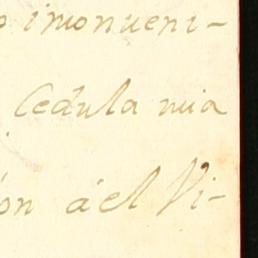 o inconueni-
Cedula mia
on del Vi-